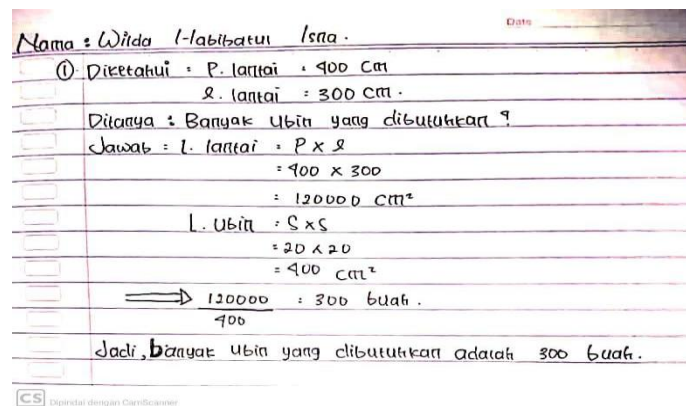 Date
Nama : Wilda Habibatul Isna.
① Diketahui : P. lantai : 400 cm
l. lantai : 300 cm.
Ditanya : Banyak Ubin yang dibutuhkan ?
Jawab : L. lantai : P x l
= 400 x 300
= 120000 cm²
L. Ubin : S x S
= 20 x 20
= 400 cm²
⟹ 120000 : 300 buah.
400
Jadi, banyak ubin yang dibutuhkan adalah 300 buah.
CS Dipindai dengan CamScanner